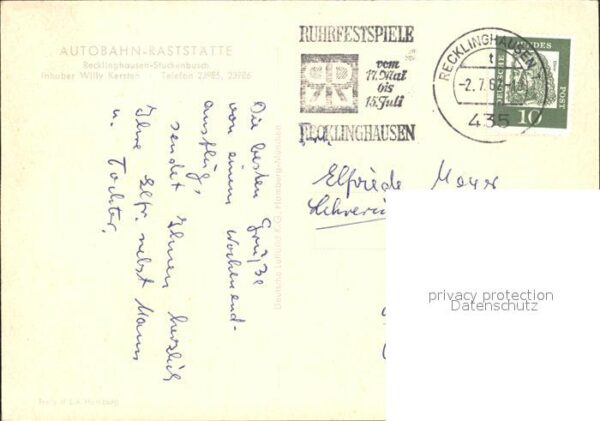 AUTOBAHN-RASTSTÄTTE
Recklinghausen-Stuckenbusch
Inhaber Willy Kersten · Telefon 22985, 23926
Die besten Grüße
von einem Wochenend-
ausflug,
sendet Ihnen herzlich
Ihre Elfr. nebst Mann
u. Tochter.
Deutsche Luftbild K.G., Hamburg-München
RUHRFESTSPIELE
vom
17. Mai
bis
15. Juli
RECKLINGHAUSEN
RECKLINGHAUSEN 1
-2.7.6
435
DEUTSCHE BUNDESPOST
10
Elfriede Mayer
Lehrerin
privacy protection
Datenschutz